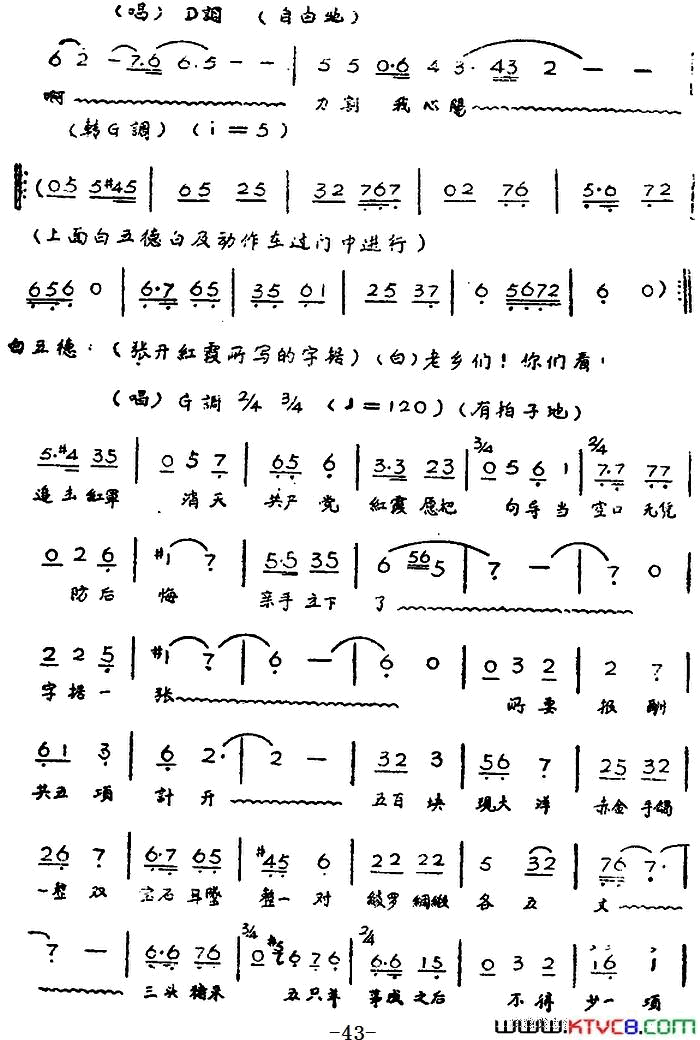 (唱) D調 (自由地)
6 2 - 7·6 6·5 - - | 5 5 0·6 4 3·43 2 - -
啊 刀割 我心腸
(转G調) (i=5)
(05 5#45 | 65 25 | 32 767 | 02 76 | 5·6 72
(上面白五德白及动作在过门中进行)
656 0 | 6·7 65 | 35 61 | 25 37 | 6 5672 | 6 0)
白五德: (张开紅霞所写的字据) (白)老乡们! 你们看!
(唱) G調 2/4 3/4 (♩=120) (有拍子地)
5·#4 35 | 0 5 7 | 65 6 | 3·3 23 | 3/4 0 5 6 1 | 2/4 7·7 77
追击紅軍 消灭 共产党 紅霞愿把 向导当 空口无凭
0 2 6 | #1 7 | 5·5 35 | 6 565 | 7 - | 7 0
防后 悔 亲手立下 了
2 2 5 | #1 7 | 6 - | 6 0 | 0 3 2 | 2 7
字据一 张 所要 报酬
6 1 3 | 6 2· | 2 - | 32 3 | 56 7 | 25 32
共五項 計开 五百块 現大洋 赤金手镯
26 7 | 6·7 65 | #45 6 | 22 22 | 5 32 | 76 7·
一整双 宝石耳墜 整一对 綾罗綢緞 各五 丈
7 - | 6·6 76 | 3/4 0 #5 6 6 7 6 | 2/4 6·6 15 | 0 3 2 | i6 i
三头猪来 五只羊 事成之后 不得 少一項
-43-
www.KTVC8.com